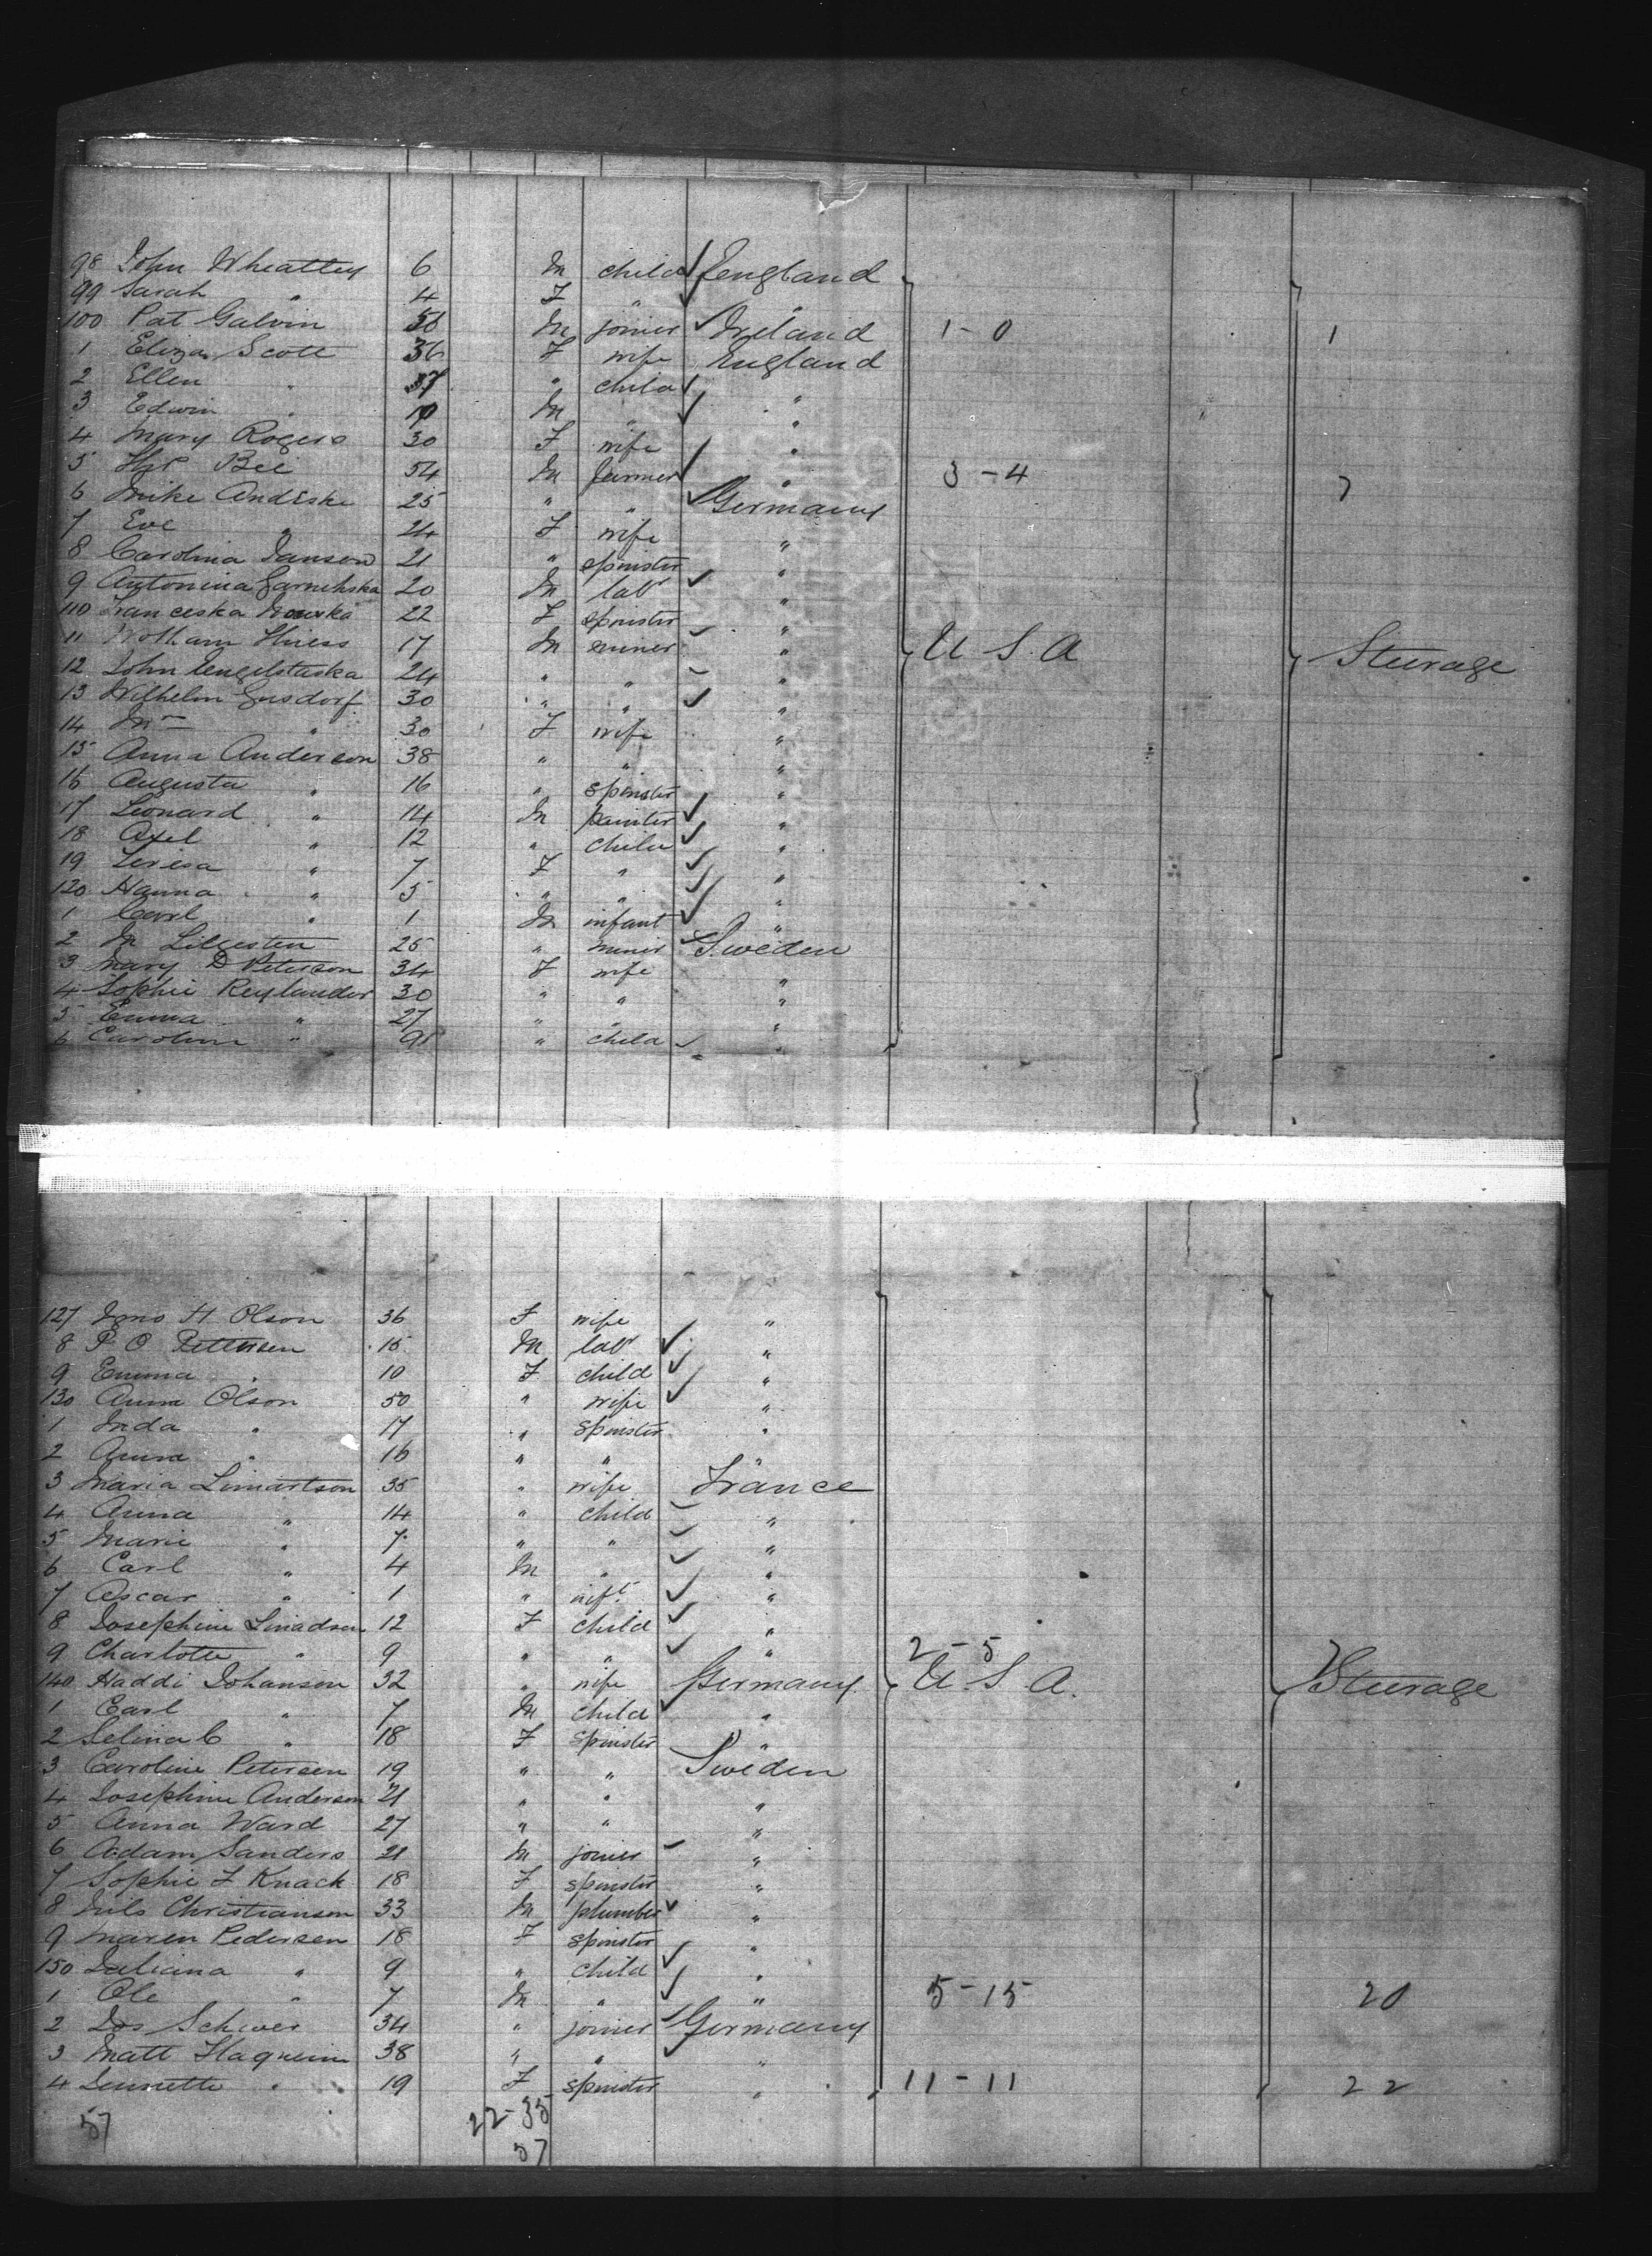 98 John Wheatley 6 M child England
99 Sarah " 4 F " "
100 Pat Galvin 56 M joiner Ireland 1-0 1
1 Eliza Scott 36 F wife England
2 Ellen " " child "
3 Edwin " M " "
4 Mary Rogers 30 F wife "
5 Bee 54 M farmer " 3-4 7
6 Mike Andeske 25 " " Germany
7 Eve " 24 F wife "
8 Carolina Janson 21 " spinster "
9 Antonina 20 M labr "
110 Franceska 22 F spinster "
11 17 M miner " U S A Steerage
12 John 24 " " "
13 Wilhelm Gusdorf 30 " " "
14 Mrs " 30 F wife "
15 Anna Anderson 38 " " "
16 Augusta " 16 " spinster "
17 Leonard " 14 M painter "
18 Axel " 12 " child "
19 Teresa " 7 F " "
120 Hanna " 5 " " "
1 Carl " 1 M infant "
2 M Lilgesten 25 " miner Sweden
3 Mary D Peterson 34 F wife "
4 Sophie Reylander 30 " " "
5 Emma " 27 " " "
6 Carolin " 9 " child "
127 H Olson 36 F wife "
8 P O Pettersen 15 M labr "
9 Emma " 10 F child "
130 Anna Olson 50 " wife "
1 Inda " 17 " spinster "
2 Anna " 16 " " "
3 Maria Linartson 35 " wife France
4 Anna " 14 " child "
5 Marie " 7 " " "
6 Carl " 4 M " "
7 Ascar " 1 " inft "
8 Josephine Linadson 12 F child "
9 Charlotte " 9 " " " 2-5 7
140 Haddi Johanson 32 " wife Germany U S A. Steerage
1 Carl " 7 M child "
2 Selina C " 18 F spinster "
3 Caroline Petersen 19 " " Sweden
4 Josephine Anderson 21 " " "
5 Anna Ward 27 " " "
6 Adam Sanders 21 M joiner "
7 Sophie F Knack 18 F spinster "
8 Nils Christianson 33 M plumber "
9 Maren Pedersen 18 F spinster "
150 Juliana " 9 " child "
1 Ole " 7 M " " 5-15 20
2 Jos Schwer 34 " joiner Germany
3 Matt Haqueim 38 " " "
4 Jennette " 19 F spinster " 11-11 22
57 22-35
57